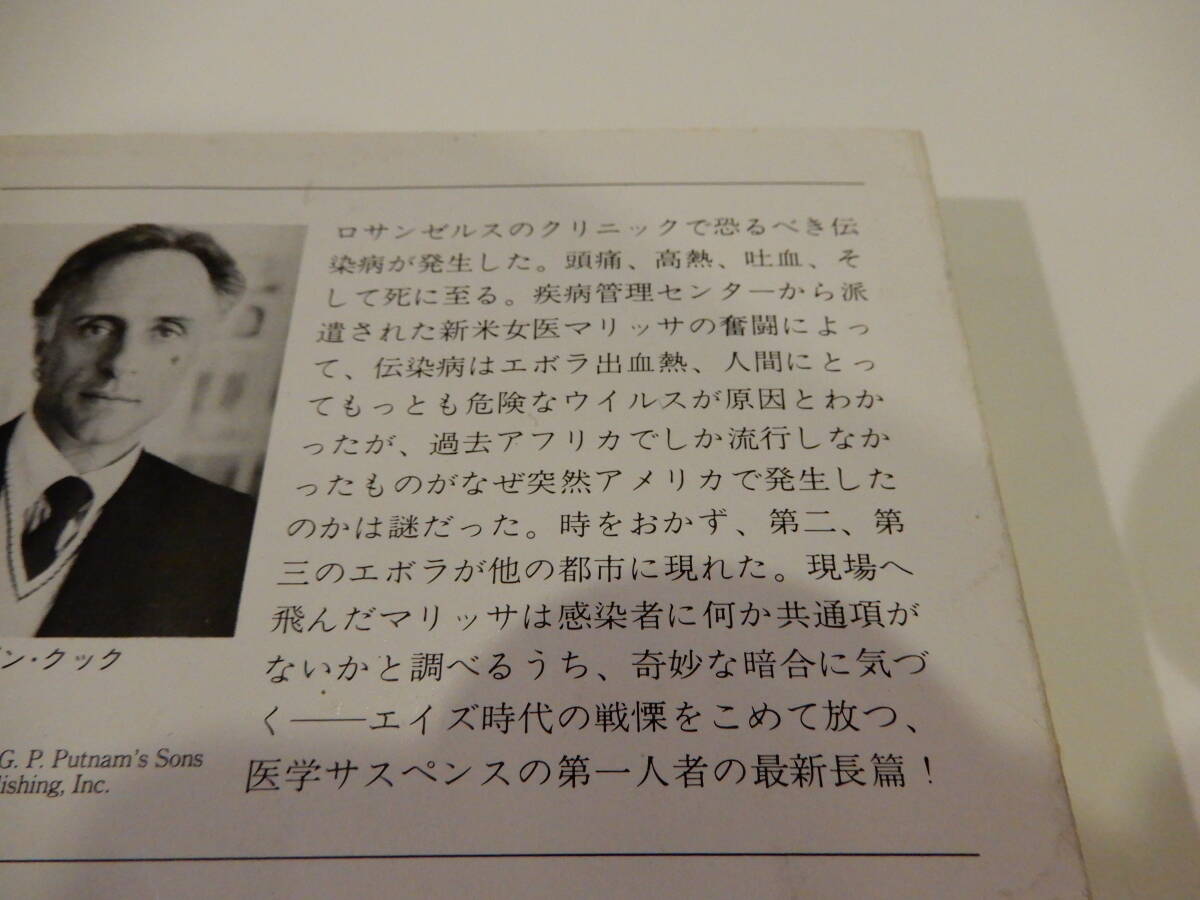 ロサンゼルスのクリニックで恐るべき伝
染病が発生した。頭痛、高熱、吐血、そ
して死に至る。疾病管理センターから派
遣された新米女医マリッサの奮闘によっ
て、伝染病はエボラ出血熱、人間にとっ
てもっとも危険なウイルスが原因とわか
ったが、過去アフリカでしか流行しなか
ったものがなぜ突然アメリカで発生した
のかは謎だった。時をおかず、第二、第
三のエボラが他の都市に現れた。現場へ
飛んだマリッサは感染者に何か共通項が
ないかと調べるうち、奇妙な暗合に気づ
く——エイズ時代の戦慄をこめて放つ、
医学サスペンスの第一人者の最新長篇！
ン・クック
G. P. Putnam's Sons
lishing, Inc.